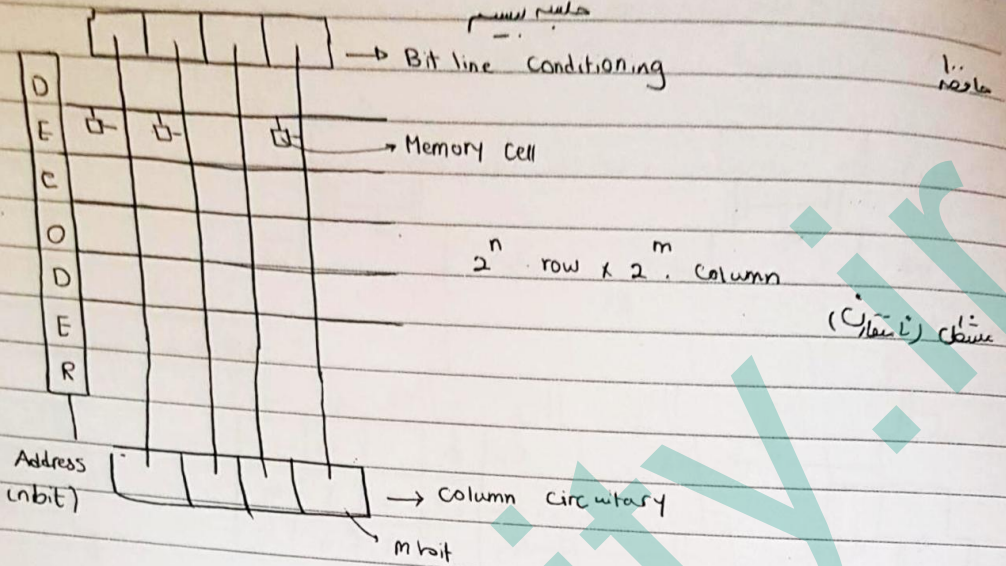 Bit line Conditioning
D
E
C
O
D
E
R
Memory Cell
2^n row x 2^m column
Address
(nbit)
Column Circuitary
m bit
ity.ir